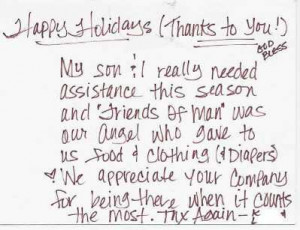 Happy Holidays (Thanks to You!)
GOD BLESS
My son & I really needed
assistance this season
and "Friends Of Man" was
our Angel who gave to
us food & clothing (& Diapers)
We appreciate your Company
for being there when it counts
the most. Thx Again -